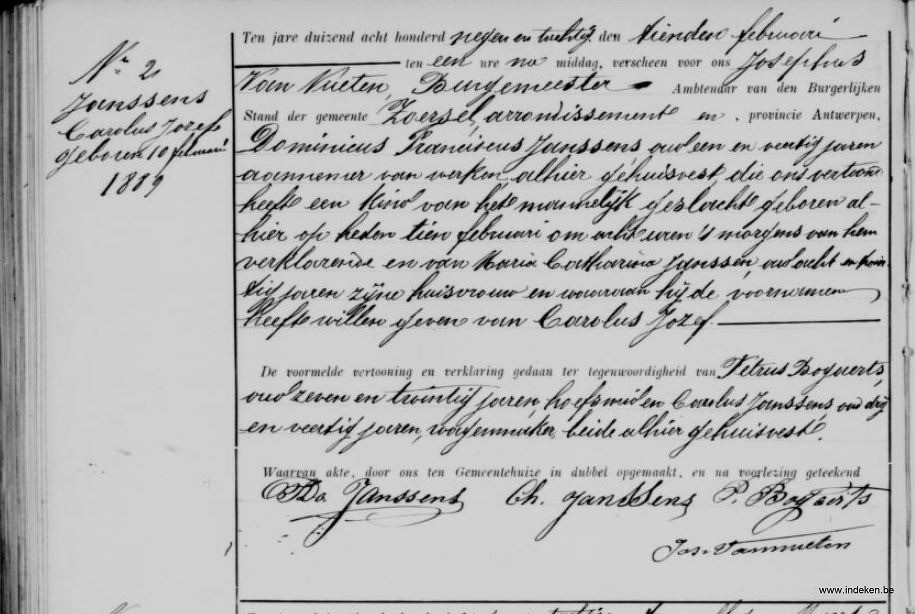 Nr 2
Janssens
Carolus Jozef
geboren 10 februari
1889
Ten jare duizend acht honderd negen en tachtig den tienden februari
ten een ure na middag, verscheen voor ons Josephus
Van Nueten, Burgemeester Ambtenaar van den Burgerlijken
Stand der gemeente Zoersel, arrondissement en , provincie Antwerpen,
Dominicus Franciscus Janssens oud een en veertig jaren
aannemer van werken, alhier gehuisvest, die ons vertoond
heeft een kind van het mannelijk geslacht geboren al-
hier op heden tien februari om acht uren 's morgens van hem
verklarende en van Maria Catharina Janssen, oud acht en twin-
tig jaren zijne huisvrouw en waaraan hij de voornamen
heeft willen geven van Carolus Jozef.
De voormelde vertooning en verklaring gedaan ter tegenwoordigheid van Petrus Bogaerts,
oud zeven en twintig jaren, hoefsmid en Carolus Janssens, oud drij
en veertig jaren, wagenmaker, beide alhier gehuisvest.
Waarvan akte, door ons ten Gemeentehuize in dubbel opgemaakt, en na voorlezing geteekend
Do Janssens Ch. Janssens P. Bogaerts
Jos. Vannueten
www.indeken.be